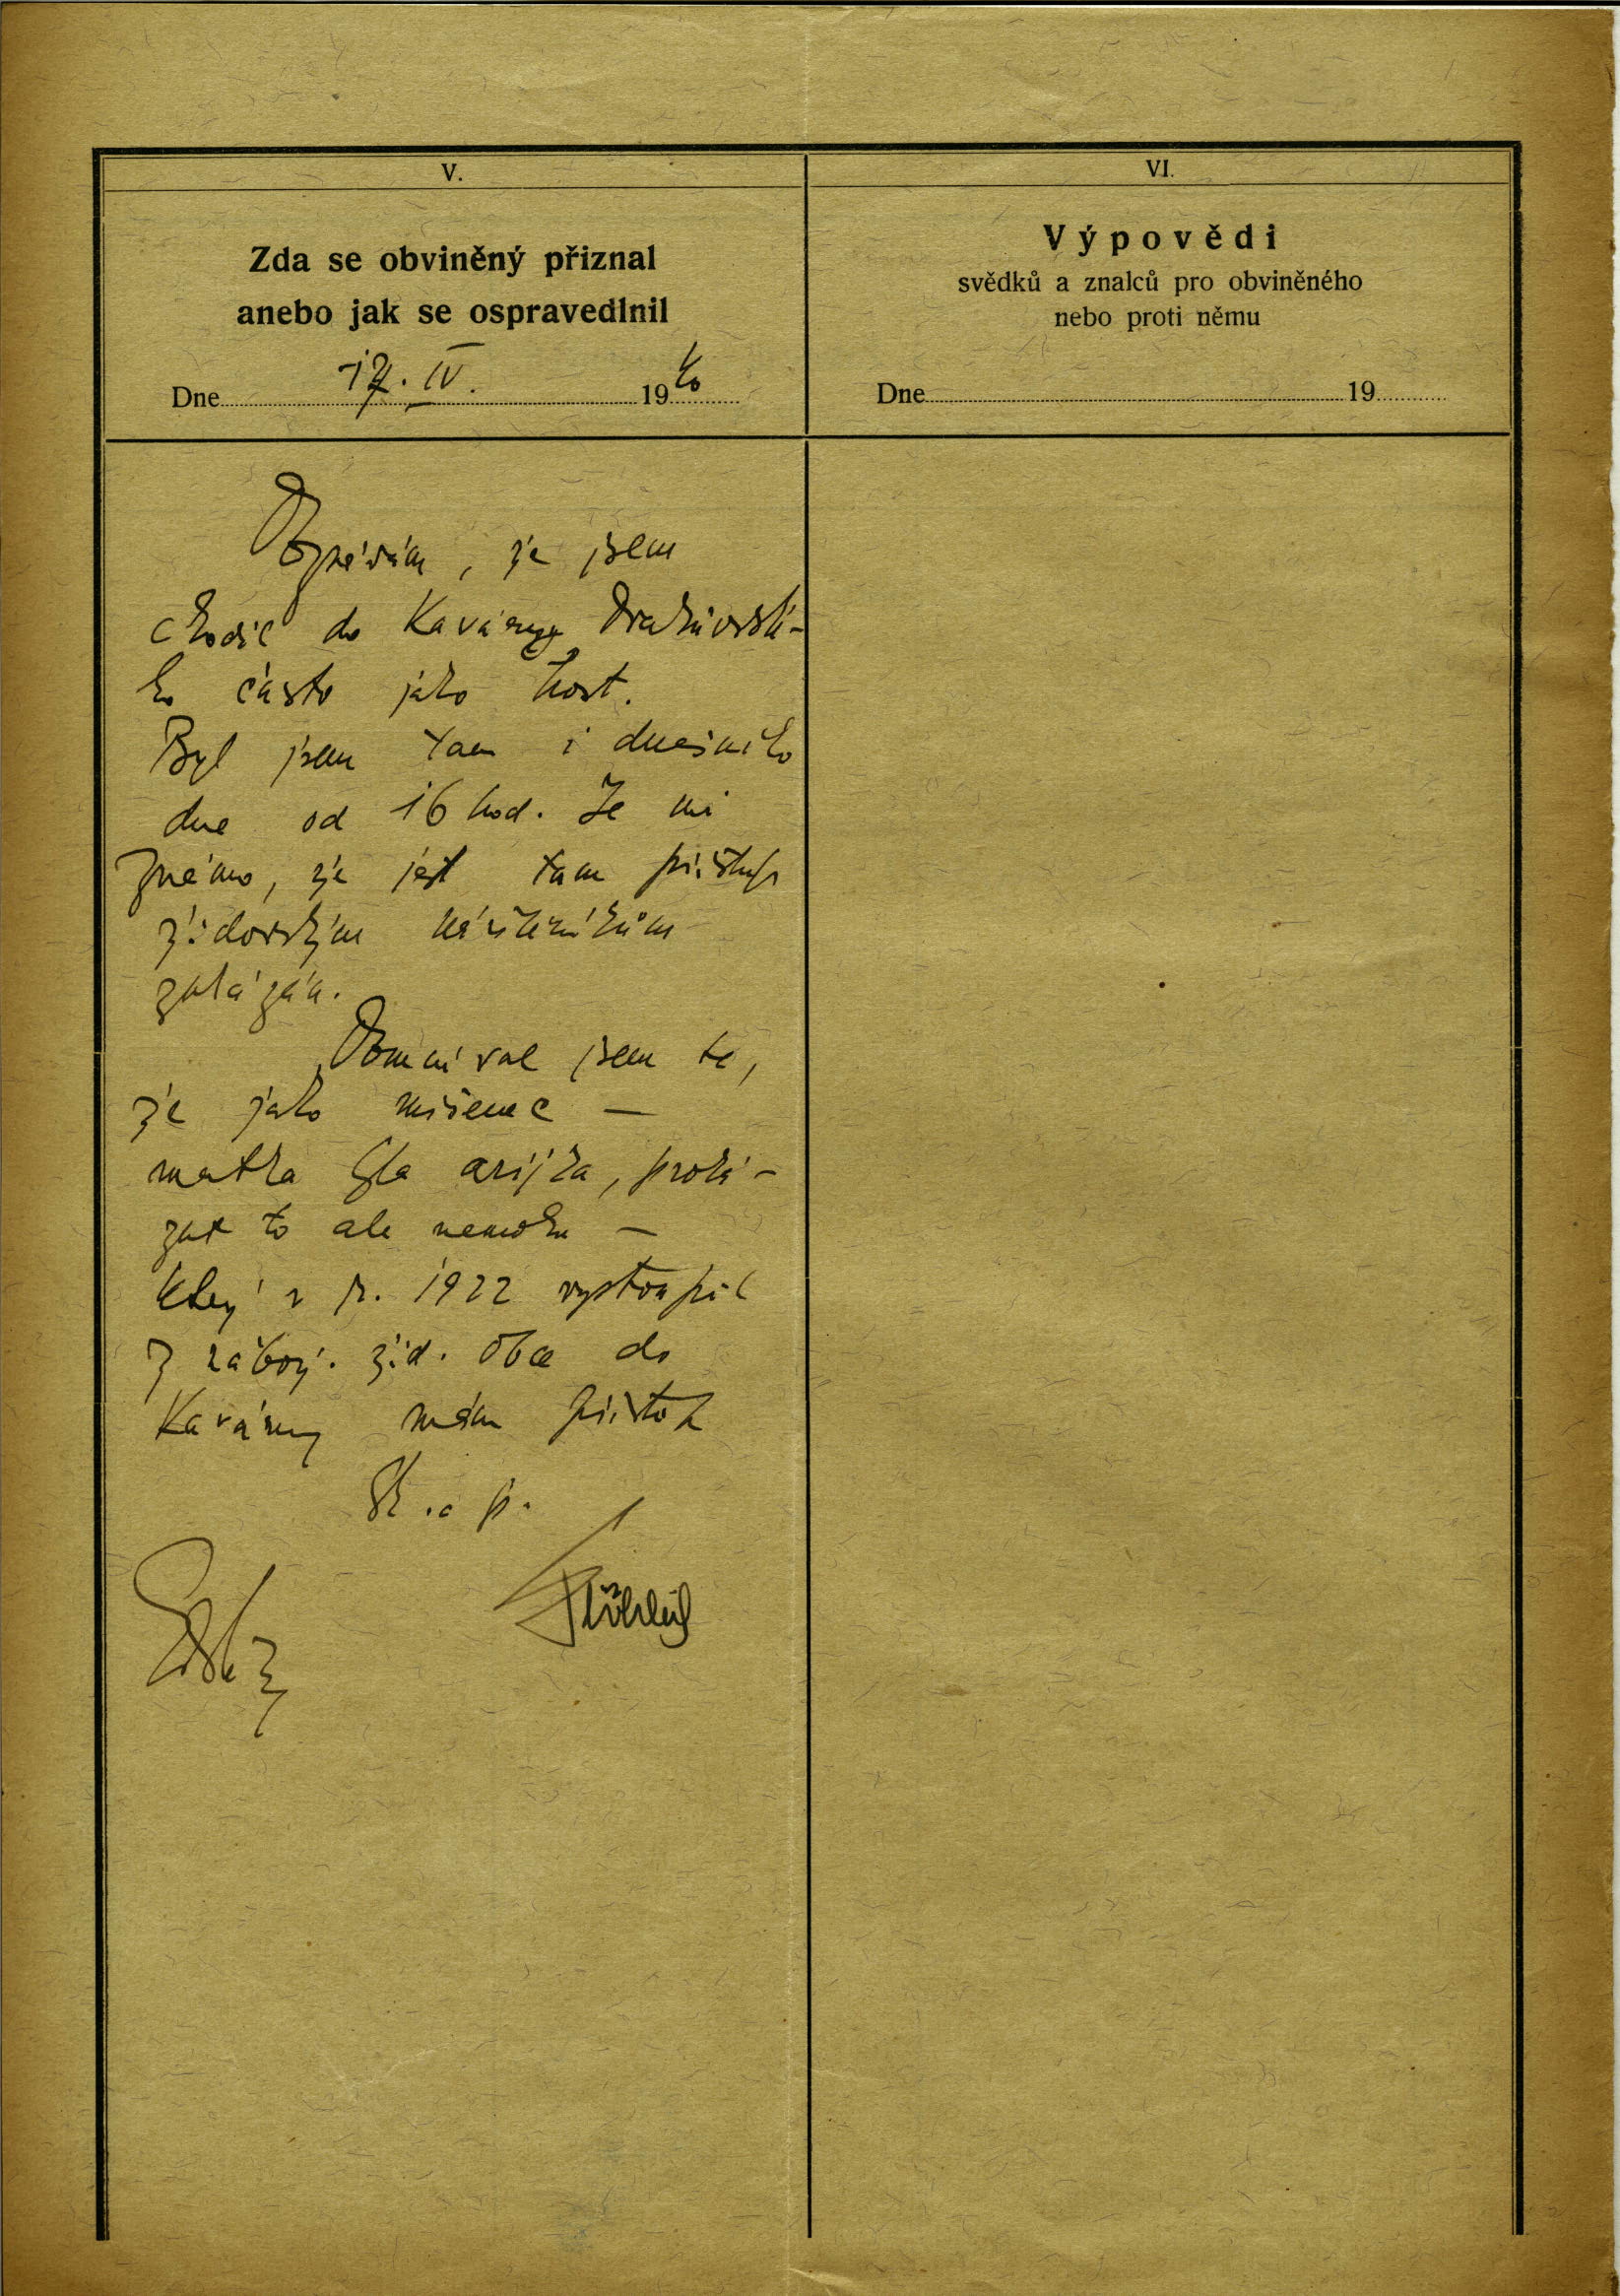 V.
Zda se obviněný přiznal
anebo jak se ospravedlnil
Dne 17. IV. 1940
VI.
Výpovědi
svědků a znalců pro obviněného
nebo proti němu
Dne 19
Doznávám, že jsem
chodil do kavárny
ho často jako host.
Byl jsem tam i dnešního
dne od 16 hod. Je mi
známo, že jest tam přístup
židovským návštěvníkům
zakázán.
Domníval jsem se,
že jako míšenec –
matka byla arijka, proká-
zat to ale nemohu –
který v r. 1922 vystoupil
z nábož. žid. obce do
kavárny mám přístup
Sk. a p.